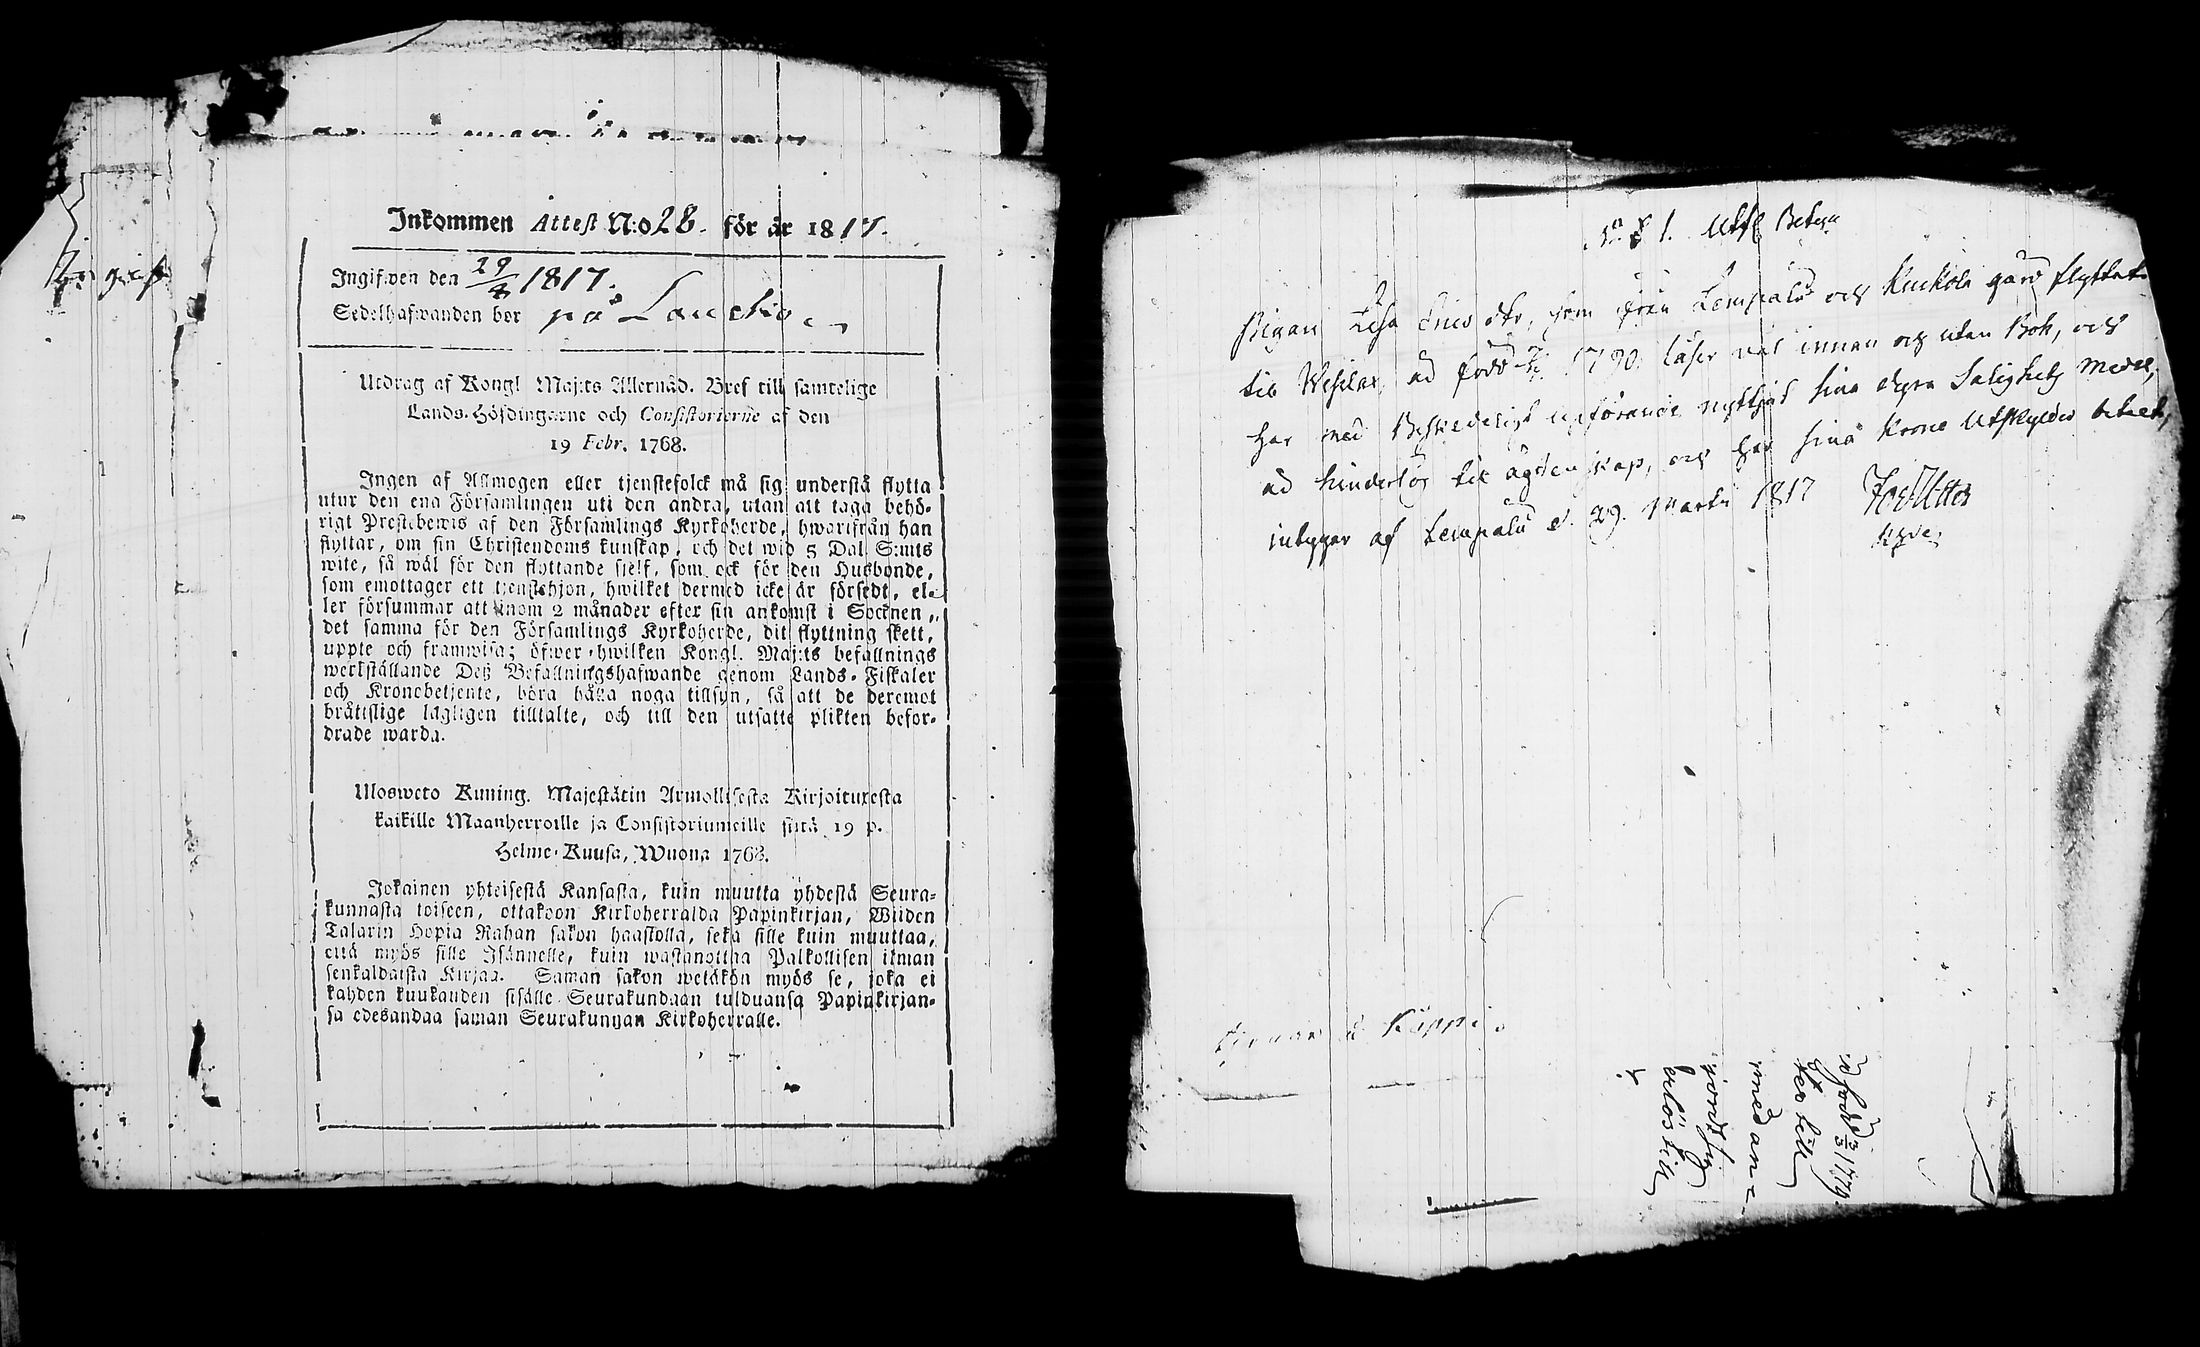 Inkommen Attest N:o 28. för år 1817.
Ingifwen den 29/8 1817.
Sedelhafwanden bor på Lauckio
Utdrag af Kongl Maj:ts Allernåd. Bref till samtelige
Lands-Höfdingarne och Consistorierne af den
19 Febr. 1768.
Ingen af Allmogen eller tjenstefolck må sig understå flytta
utur den ena Församlingen uti den andra, utan att taga behö-
rigt Prestebewis af den Församlings Kyrkoherde, hwarifrån han
flyttar, om sin Christendoms kunskap, och det wid 5 Dal. S:mts
wite, så wäl för den flyttande sjelf, som ock för den Husbonde,
som emottager ett tjenstehjon, hwilket dermed icke är försedt, el-
ler försummar att inom 2 månader efter sin ankomst i Socknen,
det samma för den Församlings Kyrkoherde, dit flyttning skett,
uppte och framwisa; öfwer-hwilken Kongl. Maj:ts befallnings
werkställande Deß Befallningshafwande genom Lands-Fiskaler
och Kronobetjente, böra hålla noga tillsyn, så att de deremot
bråttslige lagligen tilltalte, och till den utsatte plikten befor-
drade warda.
Ulosweto Kuning. Majestätin Armollisesta Kirjoituxesta
kaikille Maanherroille ja Consistoriumeille siitä 19 p.
Helme-Kuusa, Wuona 1768.
Jokainen yhteisestä Kansasta, kuin muutta yhdestä Seura-
kunnasta toiseen, ottakoon Kirkoherralda Papinkirjan, Wiiden
Talarin Hopia Rahan sakon haastolla, sekä sille kuin muuttaa,
että myös sille Isännelle, kuin wastanottaa Palkollisen ilman
senkaldaista Kirjaa. Saman sakon wetäkön myös se, joka ei
kahden kuukauden sisälle Seurakundaan tulduansa Papinkirjan-
sa edesandaa saman Seurakunnan Kirkoherralle.
N:o 81. Utfl Betyg
Pigan Lisa Ersdtr, som från Lempälä och Kuckola gård flyttat
til Wesilax, är född 1790. läser väl innan och utan Bok, och
har med Beskedeligt upförande nyttjat sina dyra Salighets medel,
är hinderlös til ägtenskap, och har sina Krono Utskylder betalt,
intygar af Lempälä d. 29. Martii 1817
Kyrkoh.
tjenar å Kåppi
är född 1779
med an-
nan sig